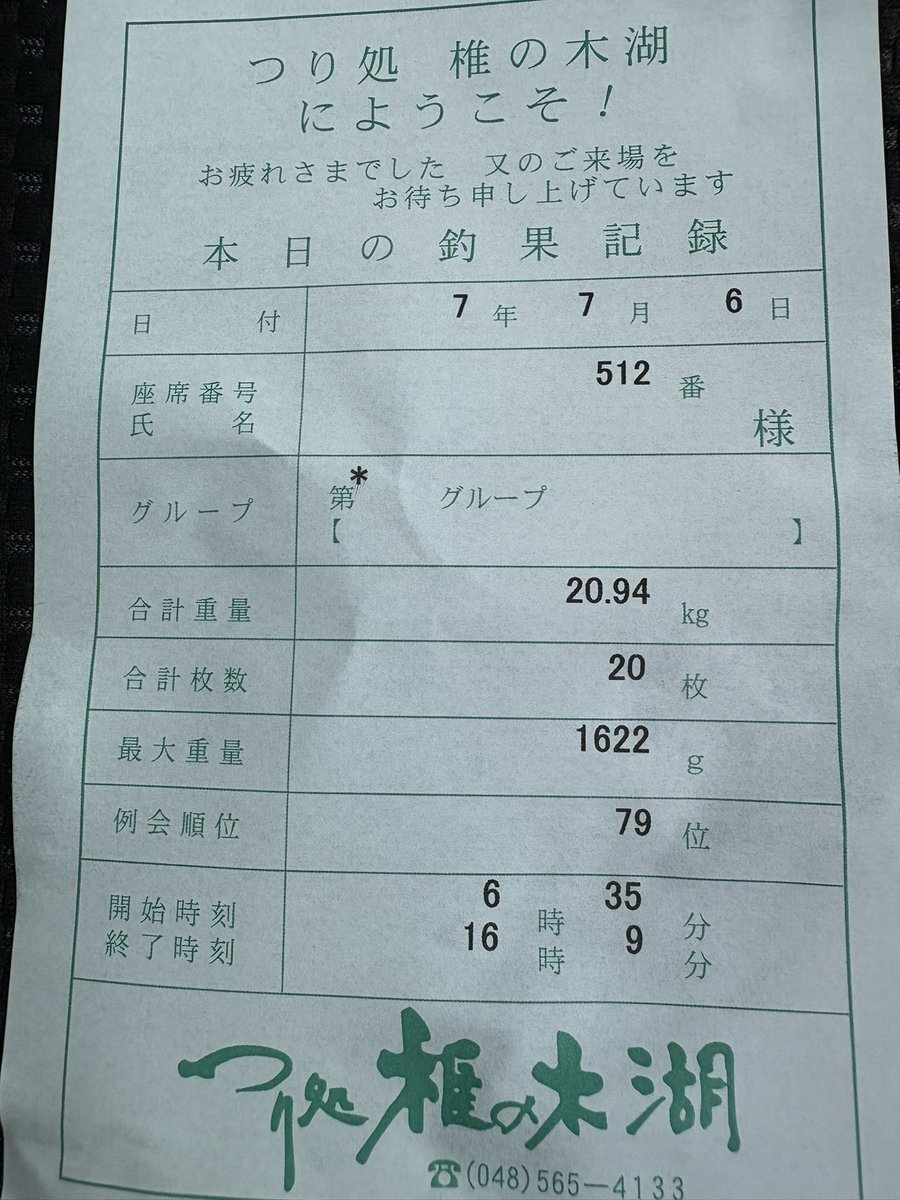 つり処 椎の木湖
にようこそ!
お疲れさまでした 又のご来場を
お待ち申し上げています
本日の釣果記録
日付 7年 7月 6日
座席番号 512番
氏名 様
グループ 第* グループ
【 】
合計重量 20.94 kg
合計枚数 20 枚
最大重量 1622 g
例会順位 79 位
開始時刻 6時 35分
終了時刻 16時 9分
つり処 椎の木湖
☎(048)565-4133